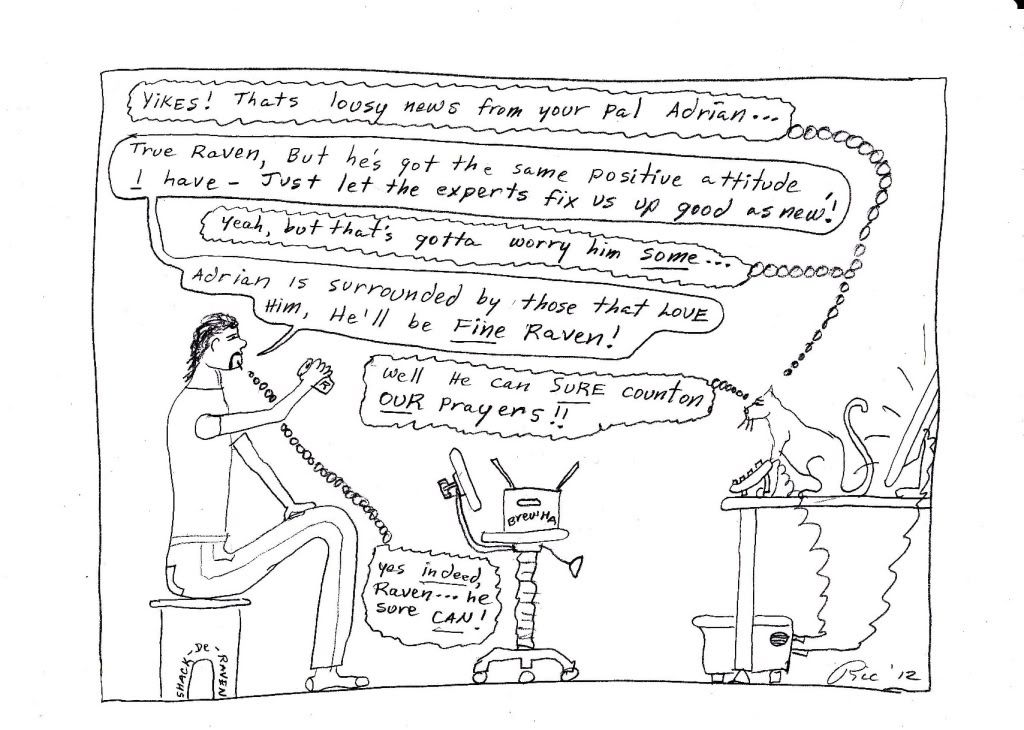 YIKES! Thats lousy news from your pal Adrian...
True Raven, But he's got the same positive attitude
I have - Just let the experts fix us up good as new!
Yeah, but that's gotta worry him some...
Adrian is surrounded by those that LOVE
Him, He'll be Fine Raven!
Well He can SURE count on
OUR Prayers!!
Yes indeed,
Raven... he
sure CAN!
Brew'HA
SHACK-De-RAVEN
Ric '12